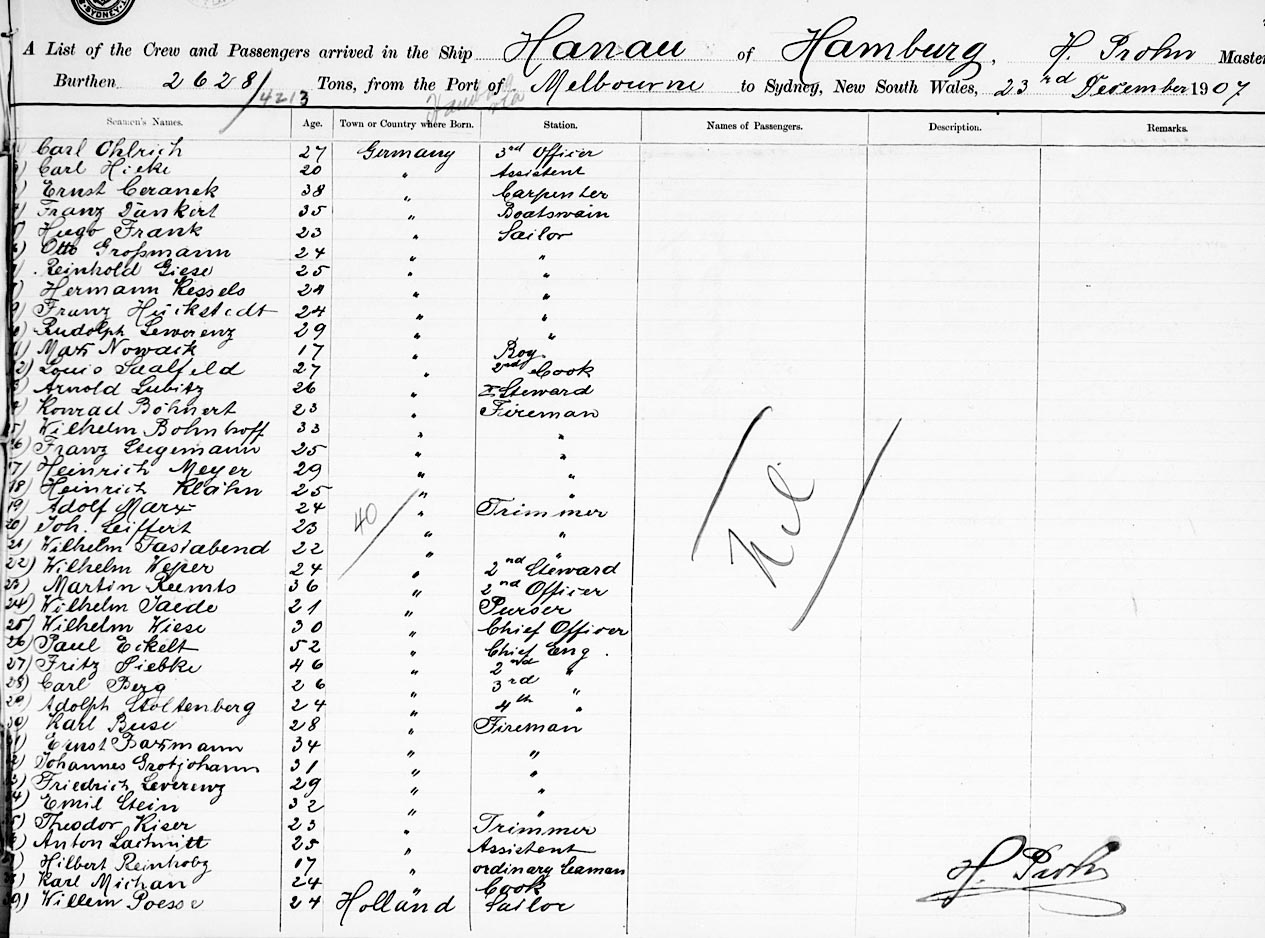 SYDNEY
A List of the Crew and Passengers arrived in the Ship Hanau of Hamburg, H. Prohn Master
Burthen 2628/4213 Tons, from the Port of Melbourne to Sydney, New South Wales, 23rd December 1907
Seamen's Names. Age. Town or Country where Born. Station. Names of Passengers. Description. Remarks.
Carl Ohlrich 27 Germany 3rd Officer
Carl Hicke 20 " Assistent
Ernst Ceranek 38 " Carpenter
Franz Dankert 35 " Boatswain
Hugo Frank 23 " Sailor
Otto Großmann 24 " "
Reinhold Giese 25 " "
Hermann Kessels 24 " "
9) Franz Huckstedt 24 " "
Rudolph Leworenz 29 " "
1) Max Nowack 17 " Boy
2) Louis Saalfeld 27 " 2nd Cook
Arnold Lubitz 26 " I Steward
Konrad Böhnert 23 " Fireman
5) Wilhelm Bohnhoff 33 " "
16) Franz Stegemann 25 " "
17) Heinrich Meyer 29 " "
18) Heinrich Klähn 25 " "
19) Adolf Marx 24 " Trimmer
20) Joh. Leiffert 23 " "
21) Wilhelm Fastabend 22 " "
22) Wilhelm Weper 24 " 2nd Steward
23) Martin Reemts 36 " 2nd Officer
24) Wilhelm Jaede 21 " Purser
25) Wilhelm Wiese 30 " Chief Officer
26) Paul Eckelt 52 " Chief Eng.
27) Fritz Siebke 46 " 2nd "
28) Carl Berg 26 " 3rd "
29) Adolph Stoltenberg 24 " 4th "
30) Karl Buse 28 " Fireman
31) Ernst Baxmann 34 " "
2) Johannes Grotjohann 31 " "
3) Friedrich Leverenz 29 " "
4) Emil Stein 32 " "
5) Theodor Kiser 23 " Trimmer
Anton Lachnitt 25 " Assistent
Hilbert Reinhobz 17 " ordinary Seaman
Karl Michan 24 " Cook
39) Willem Poesse 24 Holland Sailor
40
Nil
H. Prohn